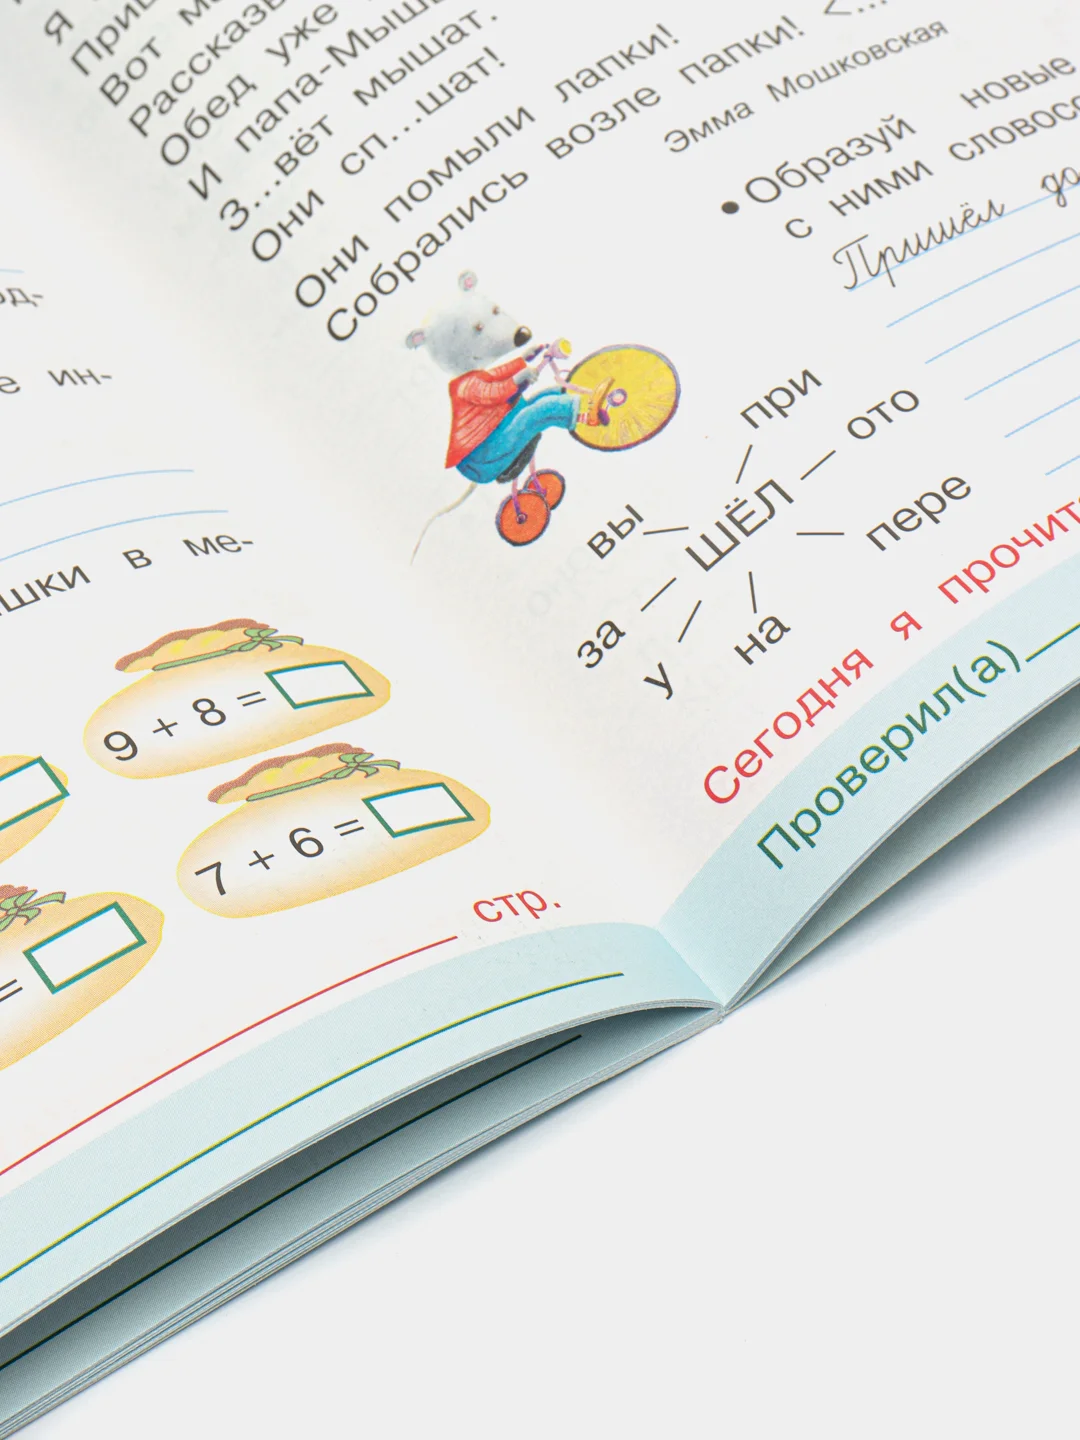 ин-
шки в ме-
9 + 8 =
7 + 6 =
=
стр.
я
Вот
Обед уже
И папа-Мышь
З...вёт мышат.
Они сп...шат!
Они помыли лапки!
Собрались возле папки! <...
Эмма Мошковская
• Образуй новые
с ними
Пришёл до
при
ото
вы
ШЁЛ
пере
за
у
на
Сегодня я
Проверил(а)